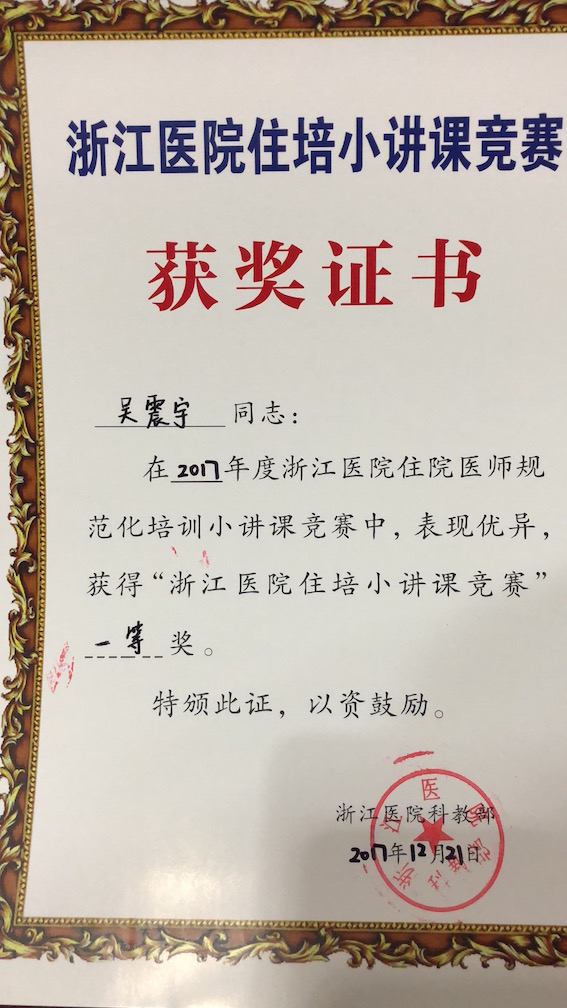 浙江医院住培小讲课竞赛
获奖证书
吴震宇 同志：
在2017年度浙江医院住院医师规
范化培训小讲课竞赛中，表现优异，
获得“浙江医院住培小讲课竞赛”
一等奖。
特颁此证，以资鼓励。
浙江医院科教部
2017年12月21日
浙江医院
科教部